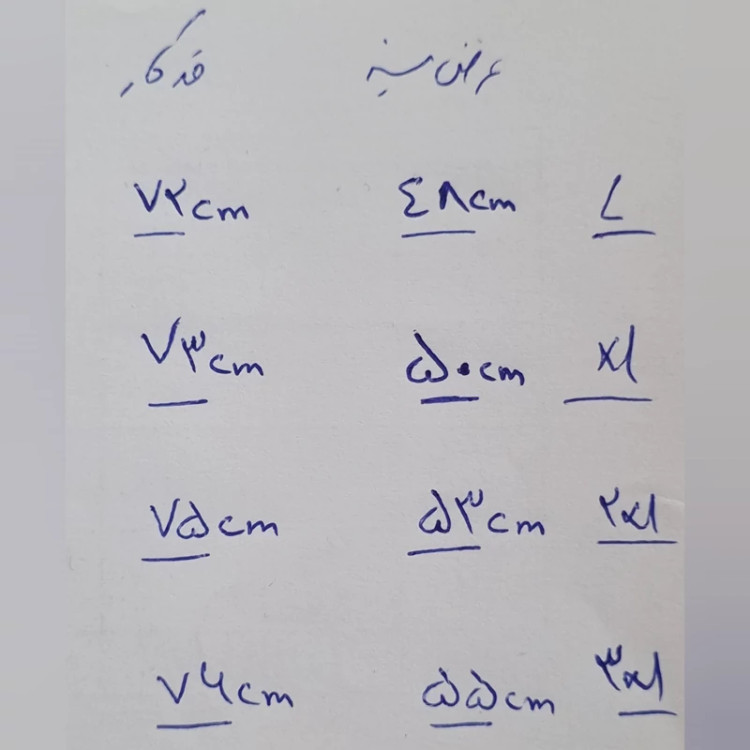 عرض سینه قد کار
L ٤۸cm ۷۲cm
xl ۵۰cm ۷۳cm
۲xl ۵۳cm ۷۵cm
۳xl ۵۵cm ۷۶cm